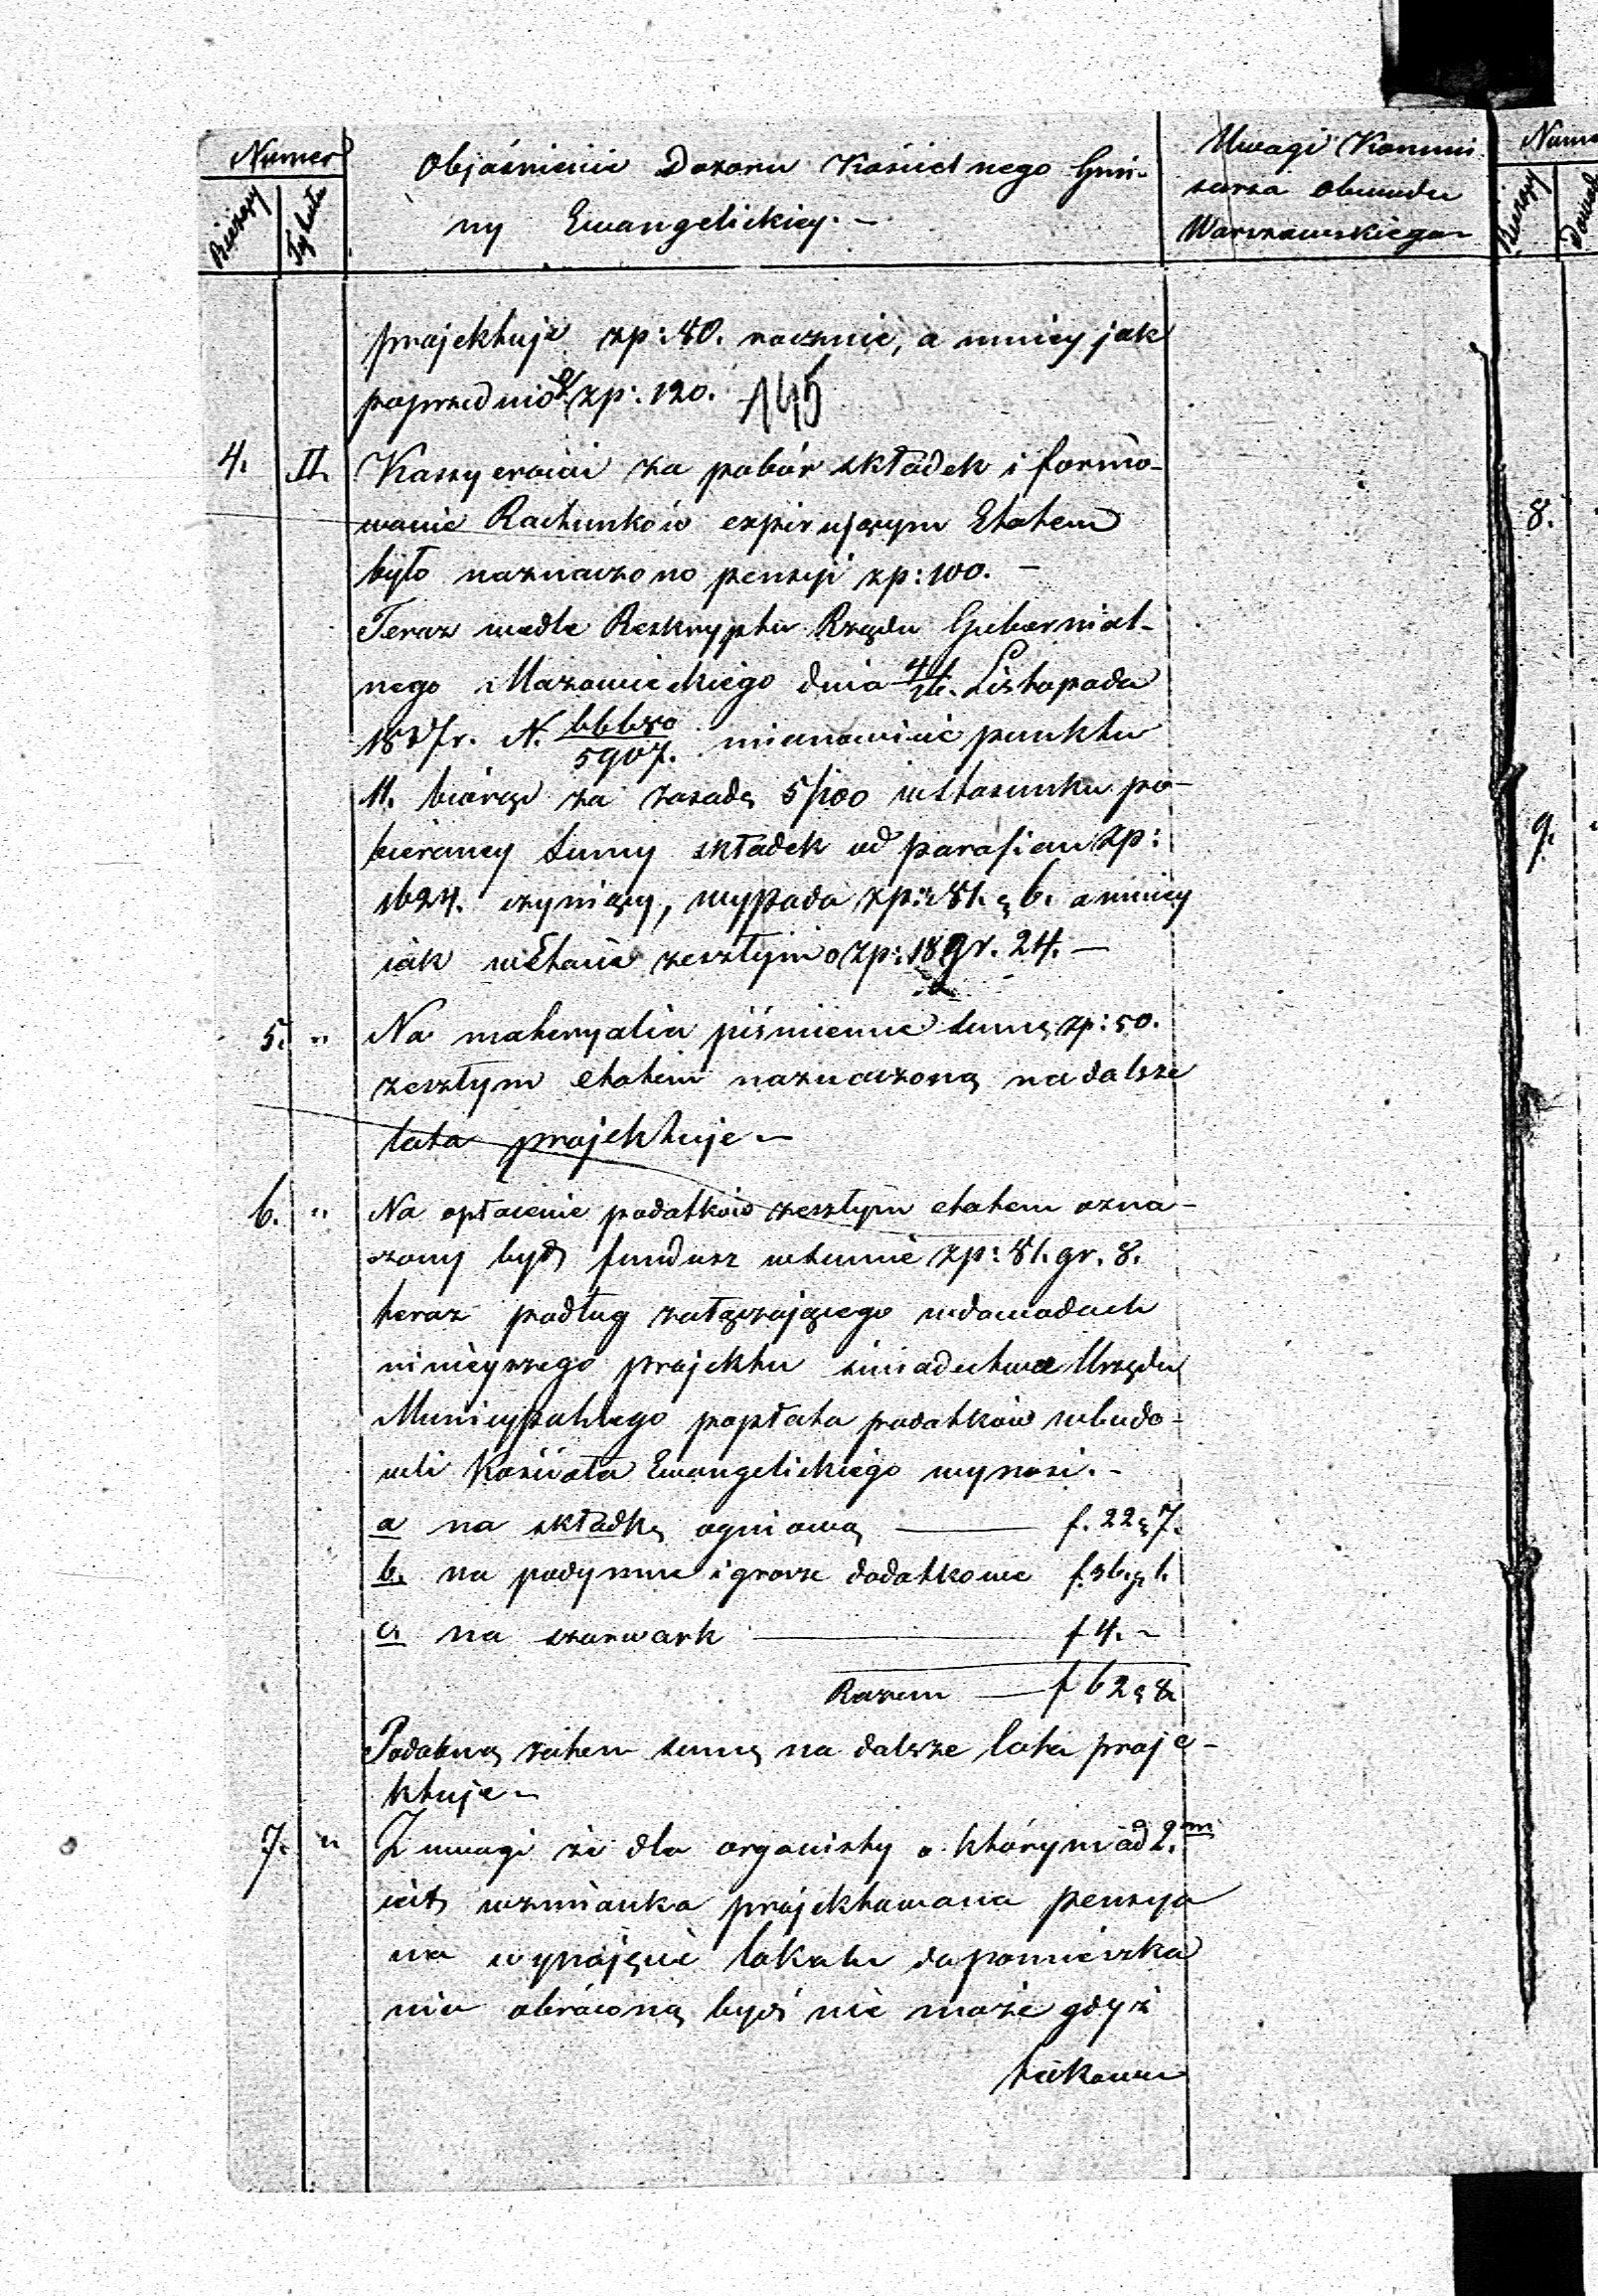 Numer
Bieżący
Tytułu
Objaśnienie Dozoru Kościelnego Gmi-
ny Ewangelickiey. –
Uwagi Kommi
sarza Obwodu
Warszawskiego
Nume
Bieżący
projektuje zp: 80. rocznie, a mniey jak
poprzednio o zp: 120.
145
4. II. Kassyerowi za pobór składek i formo-
wanie Rachunków expirującym Etatem
było naznaczono pensyi zp: 100. –
Teraz wedle Reskryptu Rządu Gubernial-
nego Mazowieckiego dnia Listopada
1837 r. N. 66680/5907. mianowicie punktu
11. biorąc za zasadę 5/100 w stosunku po-
bieraney Sumy składek od parafian zp:
1624. czyniący, wypada zp: 81. g 6. a mniey
iak w Etacie zeszłym o zp: 18 gr. 24. –
5. " Na materyalia piśmienne sumę zp: 50.
zeszłym etatem naznaczoną na dalsze
lata projektuje –
6. " Na opłacenie podatków zeszłym etatem ozna-
czony był fundusz w sumie zp: 81. gr. 8.
teraz podług załączającego w dowodach
ninieyszego projektu świadectwa Urzędu
Municypalnego popłata podatków z budo-
wli Kościoła Ewangelickiego wynosi. –
a na składkę ogniową — f. 22 g 7.
b. na podymne i grosze dodatkowe f. 36. g 1.
c. na szarwark — f 4. –
Razem — f 62 g 8
Podobną zatem sumę na dalsze lata proje-
ktuje –
7. " Z uwagi że dla organisty o którym ad 2.m
iest wzmianka projektowana pensya
na wynajęcie lokalu do pomieszka
nia obróconą bydź nie może gdyż
takowa
8.
9.